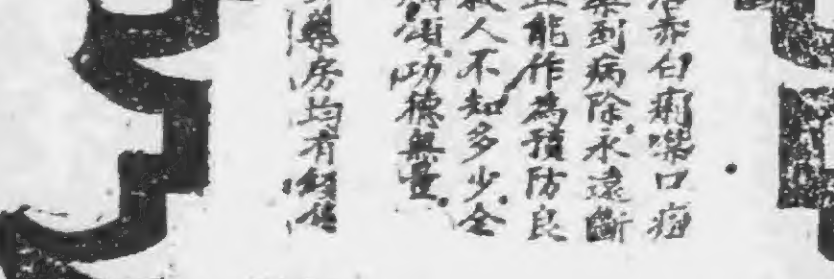 赤白痢噤口痢
藥到病除永遠斷
能作為預防良
人不知多少全
頌功德無量
藥房均有經售